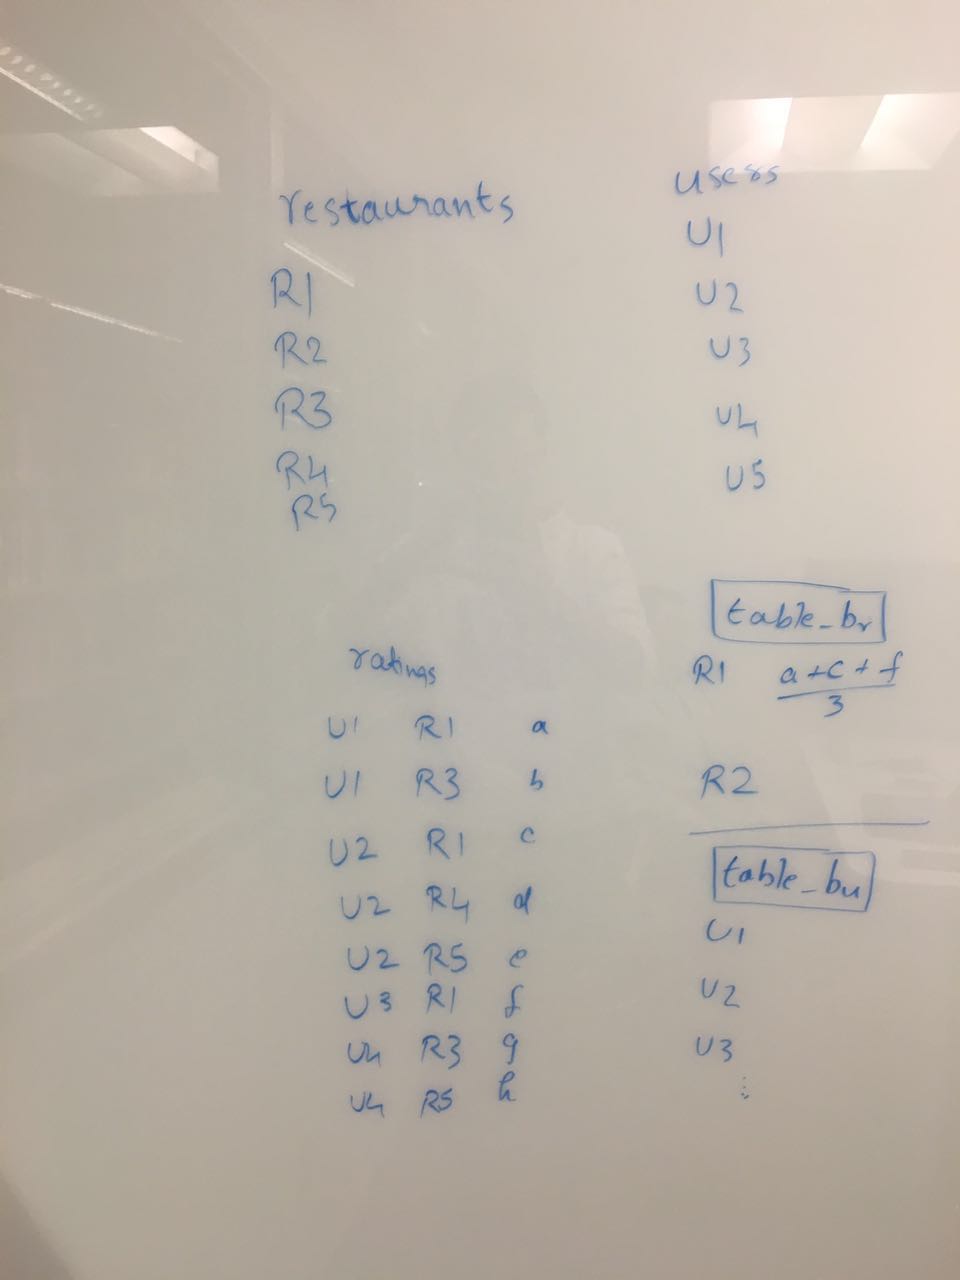 restaurants
R1
R2
R3
R4
R5
users
U1
U2
U3
U4
U5
ratings
U1 R1 a
U1 R3 b
U2 R1 c
U2 R4 d
U2 R5 e
U3 R1 f
U4 R3 g
U4 R5 h
table_br
R1 a+c+f
3
R2
table_bu
U1
U2
U3
⋮